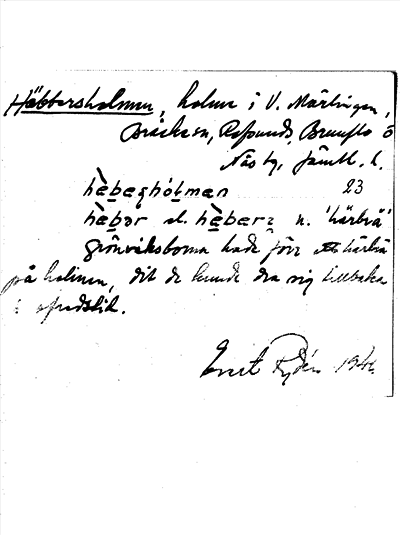 Häbbersholmen, holme i V. Mårtingen,
Bräcke sn, Refsunds, Brunflo o
Näs tg, Jämtl. l.
hɛ̀ḇeṣhólmen 23
hɛ̀ḇər el. hɛ̀ḇerɛ n. 'härbrä'
Grönviksborna hade förr härbrä
på holmen, dit de kunde dra sig tillbaka
i ofredstid.
Ernst Rydén